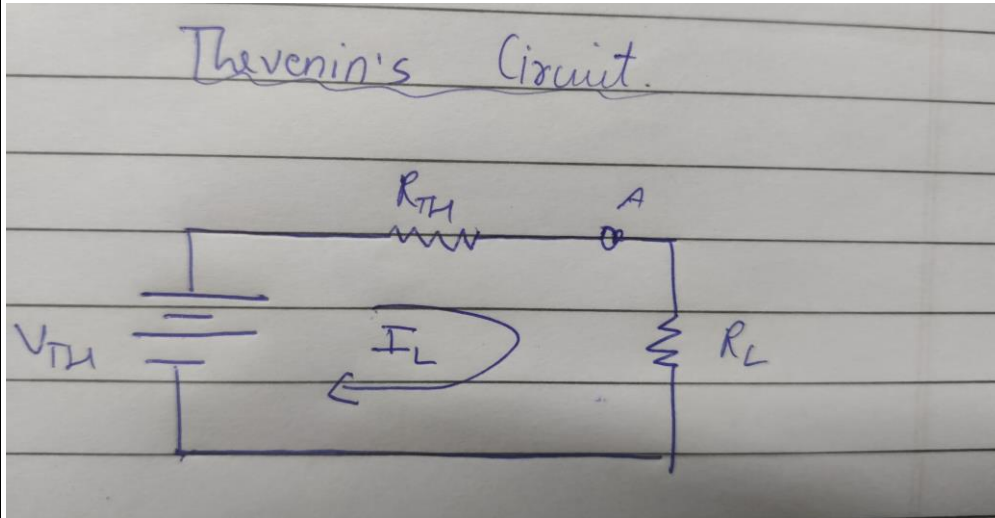 Thevenin's Circuit.
RTH
A
VTH
IL
RL